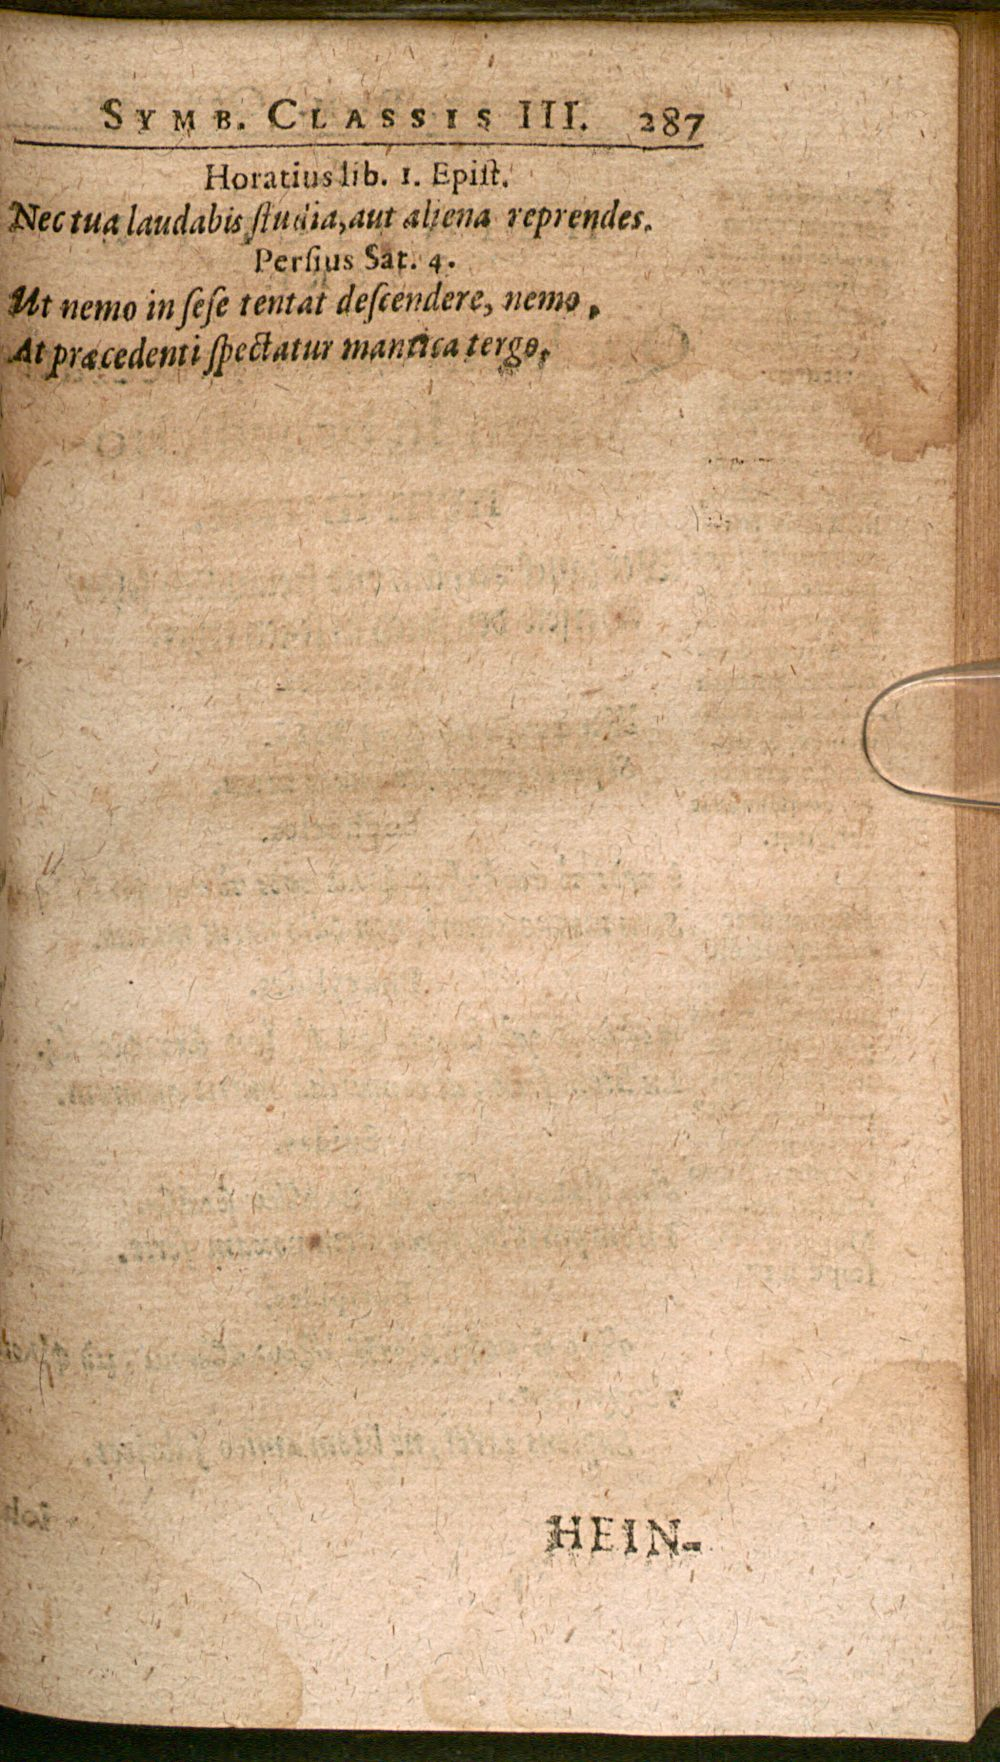 SYMB. CLASSIS III. 287
Horatius lib. 1. Epiſt.
Nec tua laudabis ſtudia, aut aliena reprendes.
Perſius Sat. 4.
Ut nemo in ſeſe tentat deſcendere, nemo,
At præcedenti ſpectatur mantica tergo.
HEIN-